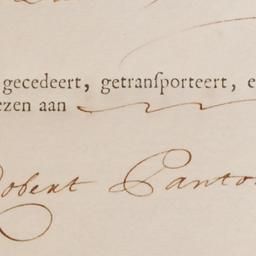 gecedeert, getransporteert, e
ezen aan
Robert Panto